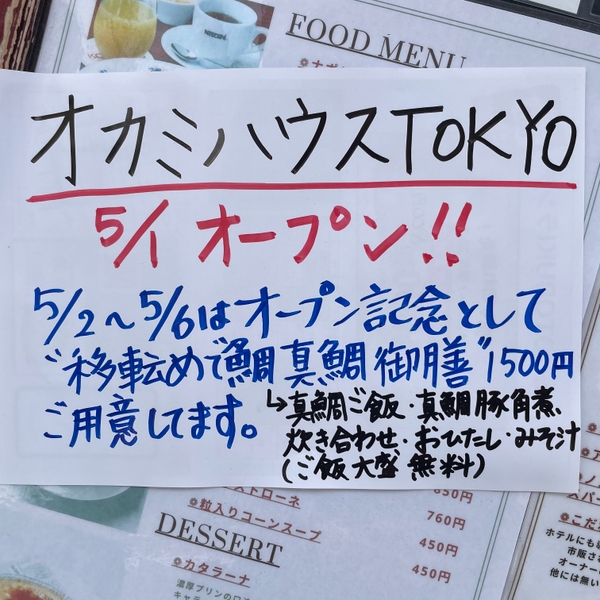 FOOD MENU
オカミハウスTOKYO
5/1 オープン!!
5/2～5/6はオープン記念として
"移転めで鯛真鯛御膳"1500円
ご用意してます。
↳真鯛ご飯・真鯛豚角煮、
炊き合わせ・おひたし・みそ汁
(ご飯大盛無料)
ストローネ
650円
粒入りコーンスープ
760円
DESSERT
450円
カタラーナ
450円
濃厚プリンの口
ホテルにも
市販さ
オーナー
他には無い